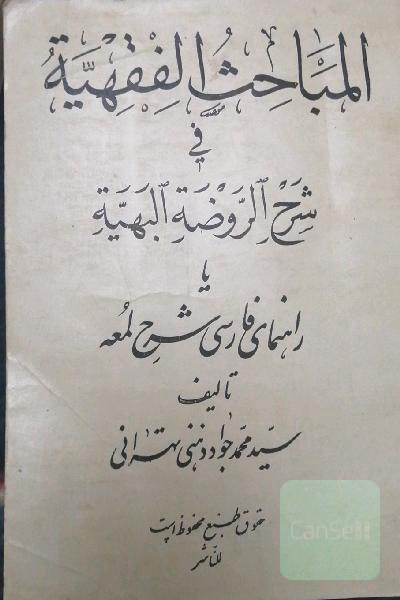 المَبَاحِثُ الفِقهِیَّةُ
في
شَرْحِ الرَّوْضَةِ البَهِيَّةِ
یا
راهنمای فارسی شرح لمعه
تالیف
سیّد محمّد جواد ذهنی تهرانی
حقوق طبع محفوظ است
للنّاشر
CanSell